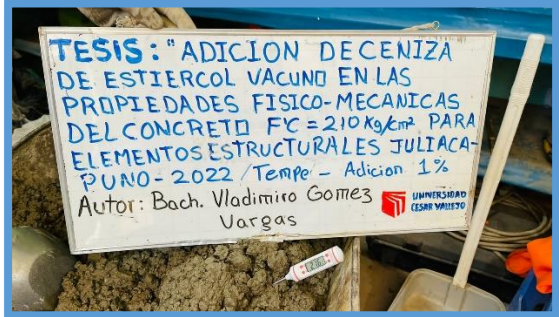 TESIS: "ADICION DE CENIZA
DE ESTIERCOL VACUNO EN LAS
PROPIEDADES FISICO-MECANICAS
DEL CONCRETO F'C = 210 Kg/cm² PARA
ELEMENTOS ESTRUCTURALES JULIACA-
PUNO-2022/Tempe - Adicion 1%
Autor: Bach. Vladimiro Gomez
Vargas
UNIVERSIDAD
CESAR VALLEJO